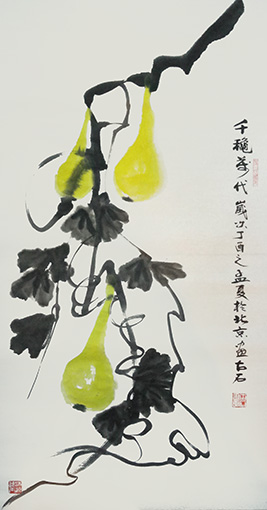 千穐萬代歲次丁酉之孟夏於北京畫古石